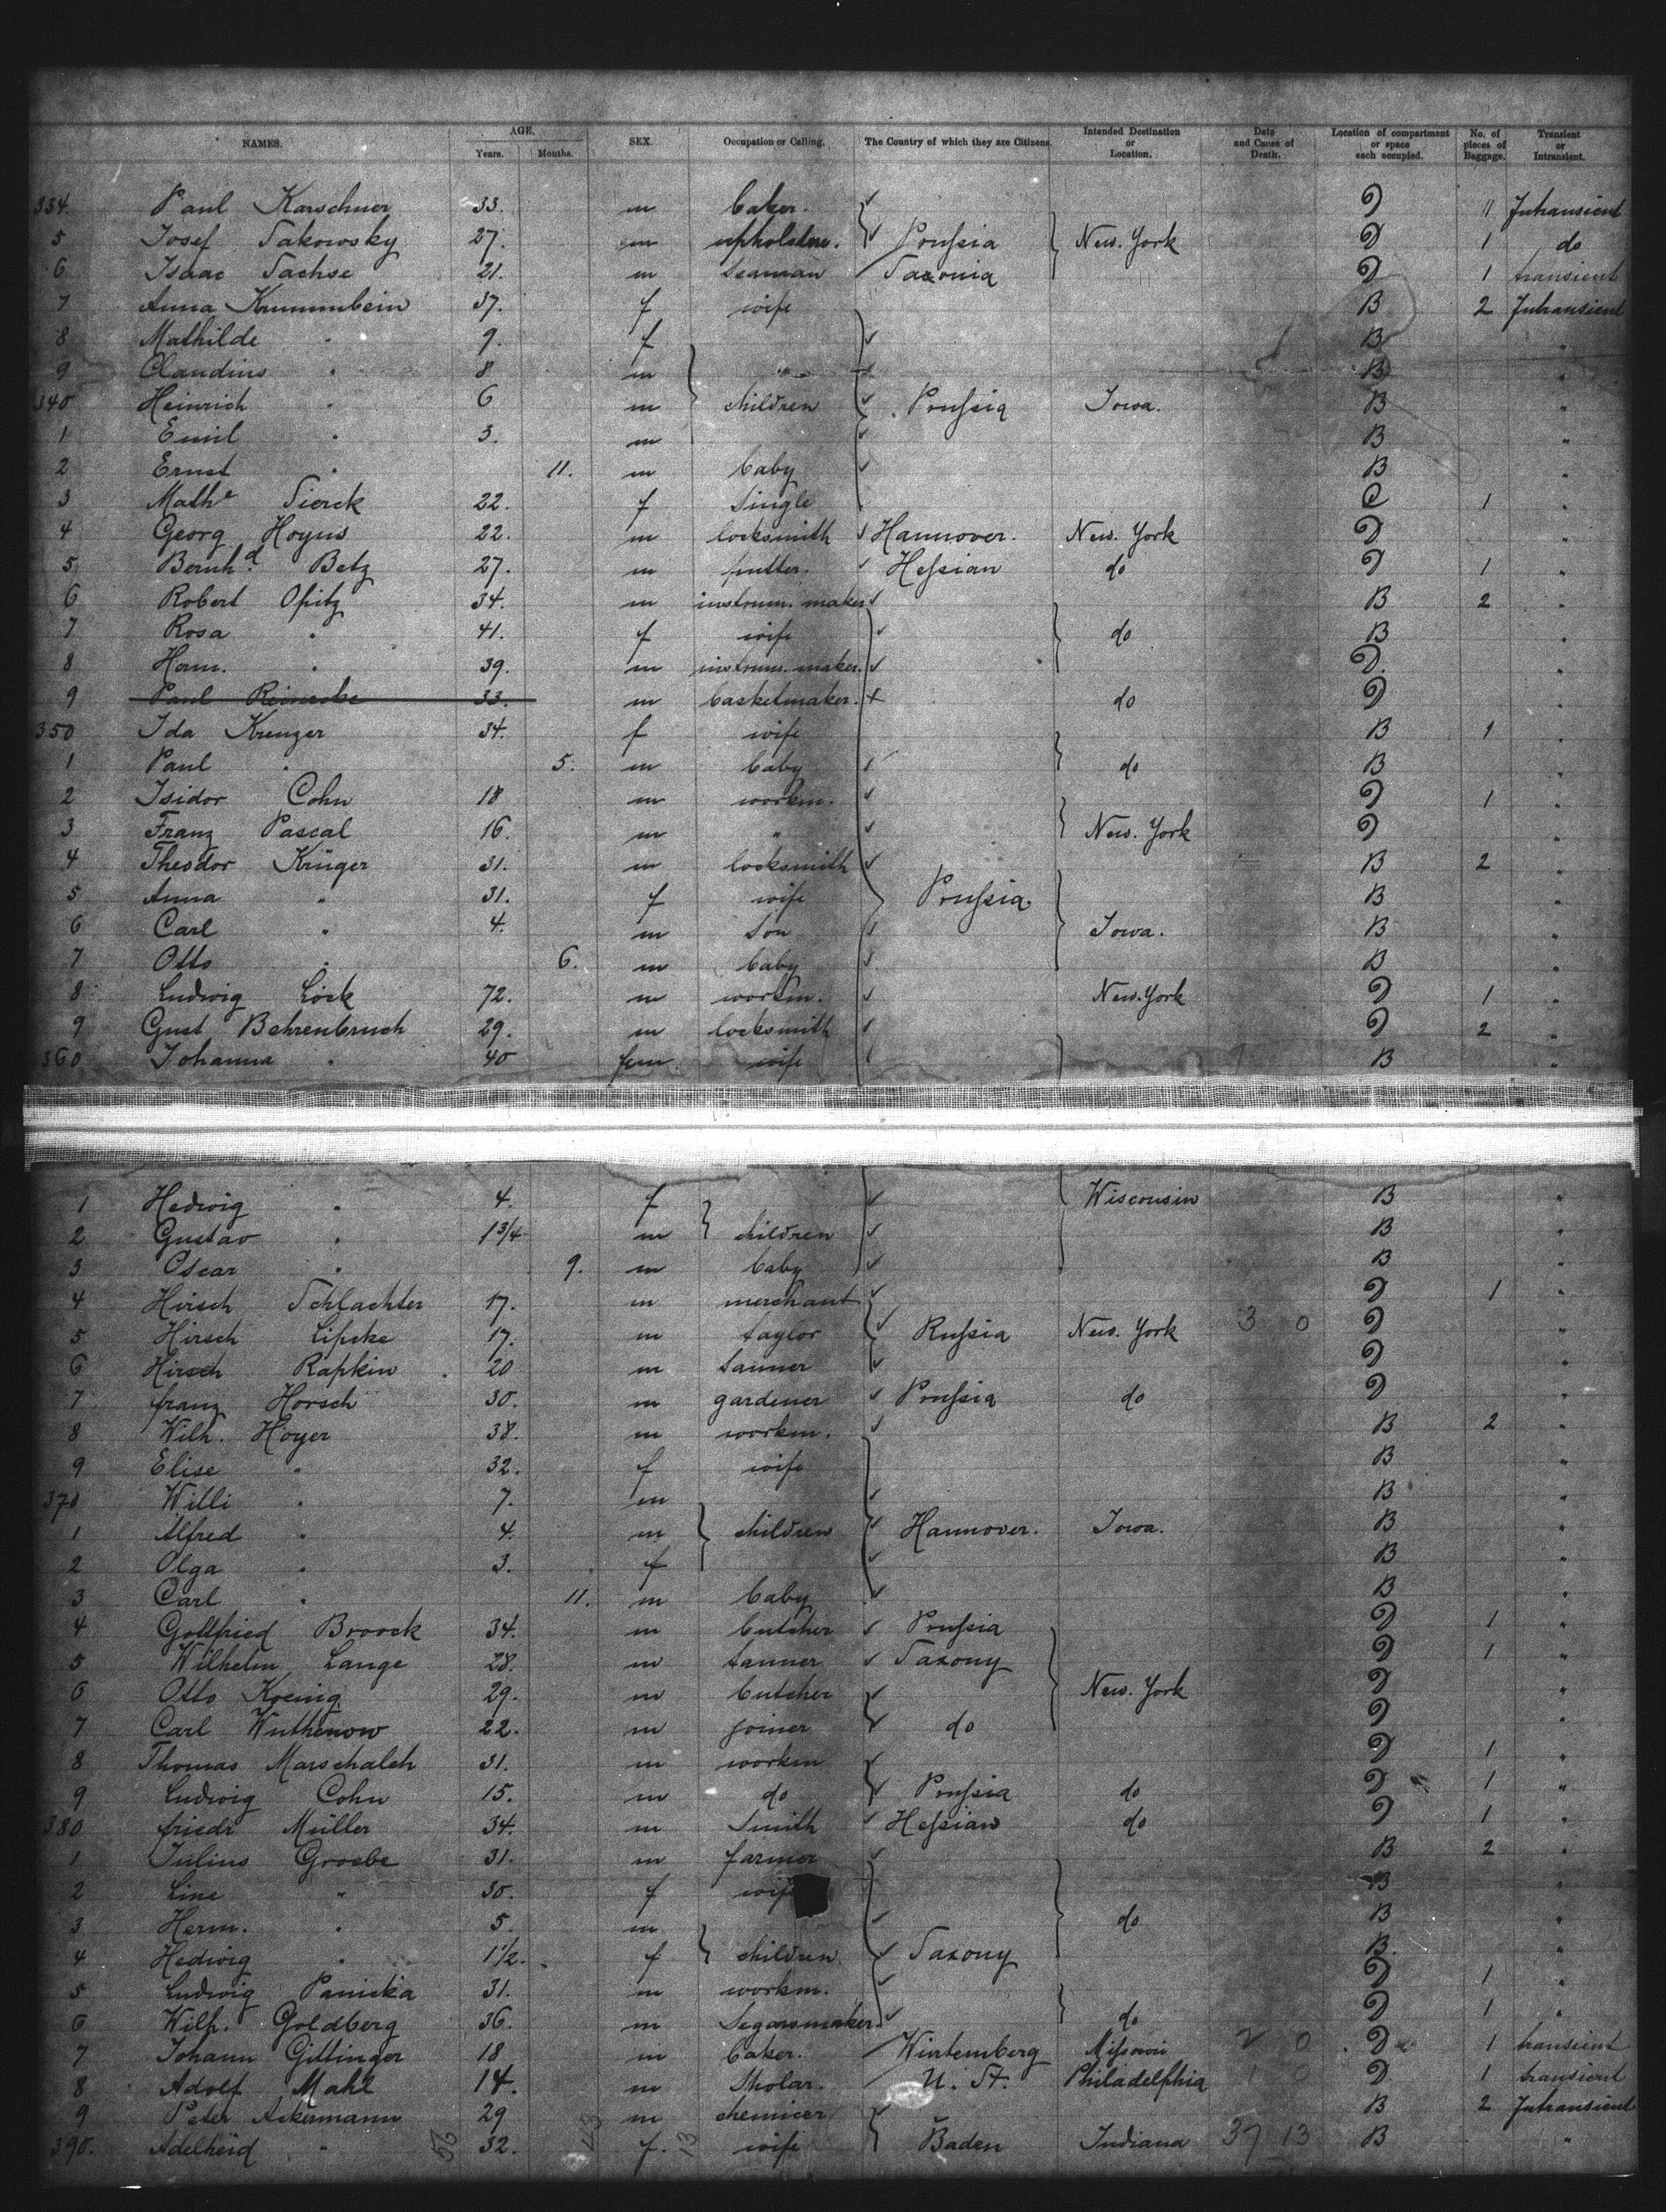 NAMES. AGE. Years. Months. SEX. Occupation or Calling. The Country of which they are Citizens. Intended Destination or Location. Date and Cause of Death. Location of compartment or space each occupied. No. of pieces of Baggage. Transient or Intransient.
334 Paul Karschner 33. m baker. D 11 Intransient
5 Josef Sakowsky 27. m upholsterer. Prussia New. York D 1 do
6 Isaac Sachse 21. m seaman Saxonia D 1 transient
7 Anna Krummbein 37. f wife B 2 Intransient
8 Mathilde " 9. f B "
9 Claudius " 8 m " B "
340 Heinrich " 6 m children Prussia Iowa. B "
1 Emil " 3. m B "
2 Ernst " 11. m baby B "
3 Mathe Sierck 22. f Single C 1 "
4 Georg Hoyns 22. m locksmith Hannover. New. York D "
5 Bernhd. Betz 27. m Hessian do D 1 "
6 Robert Opitz 34. m instrum. maker B 2 "
7 Rosa " 41. f wife do B "
8 Herm. " 39. m instrum. maker. D. "
9 Paul Reinecke 33. m basketmaker. do D "
350 Ida Kreuzer 34. f wife B 1 "
1 Paul " 5. m baby do B "
2 Isidor Cohn 18 m workm. D 1 "
3 Franz Pascal 16. m " New. York D "
4 Theodor Krüger 31. m locksmith B 2 "
5 Anna " 31. f wife Prussia. B "
6 Carl " 4. m son Iowa. B "
7 Otto " 6. m baby B "
8 Ludwig Löck 72. m workm. New. York D 1 "
9 Gust Behrenbruch 29. m locksmith D 2 "
360 Johanna " 40 fem. wife B "
1 Hedwig " 4. f Wisconsin B "
2 Gustav " 1 3/4 m children B "
3 Oscar " 9. m baby B "
4 Hirsch Schlachter 17. m merchant D 1 "
5 Hirsch Lipske 17. m taylor Russia New. York 3 0 D "
6 Hirsch Rapkin 20 m tanner D "
7 franz Horsch 30. m gardener Prussia do D "
8 Wilh. Hoyer 38. m workm. B 2 "
9 Elise " 32. f wife B "
370 Willi " 7. m B "
1 Alfred " 4. m children Hannover. Iowa. B "
2 Olga " 3. f B "
3 Carl " 11. m baby B "
4 Gottfried Broock 34. m butcher Prussia D 1 "
5 Wilhelm Lange 28. m tanner Saxony D 1 "
6 Otto Koenig 29. m butcher New. York D "
7 Carl Wuthenow 22. m joiner do D "
8 Thomas Marschaleh 31. m workm D 1 "
9 Ludwig Cohn 15. m do Prussia do D 1 "
380 friedr Müller 34. m Smith Hessian do D 1 "
1 Julius Groebe 31. m farmer B 2 "
2 Line " 30. f wife B "
3 Herm. " 5. m do B "
4 Hedwig " 1 1/2. f children Saxony B. "
5 Ludwig Panicka 31. m workm. D 1 "
6 Wilh. Goldberg 36. m Segarsmaker. do D 1 "
7 Johann Gittinger 18 m baker. Wirtemberg Missouri 2 0 D 1 transient
8 Adolf Mahl 14. m Skolar. U. St. Philadelphia 1 0 D 1 transient
9 Peter Ackermann 29 m chemicer B 2 Intransient
390. Adelheid " 32. f. wife Baden Indiana 37 13 B "
56 43 13